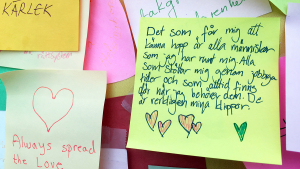 KÄRLEK
Det som får mig att
känna hopp är alla människor
som jag har runt mig. Alla
som stöttar mig genom jobbiga
tider och som alltid finns
där när jag behöver dem. De
är verkligen mina klippor.
Always spread
the Love